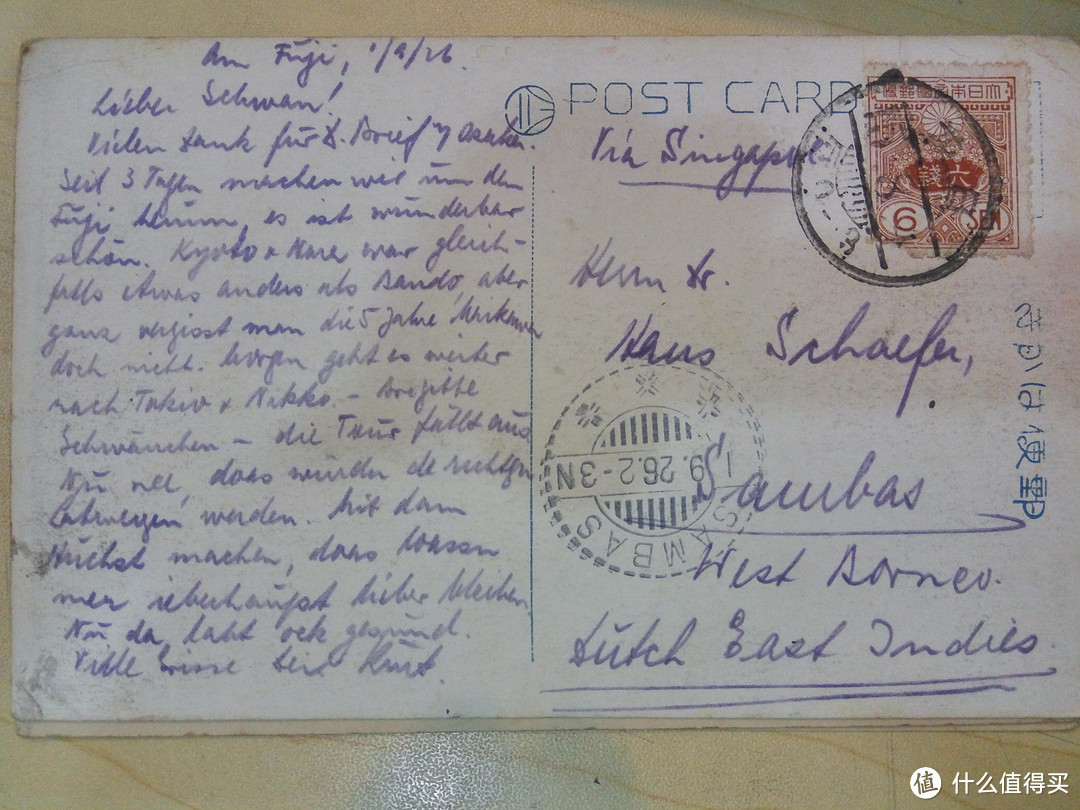 Am Fuji, 1/9/26.
Lieber Schwan!
Vielen Dank für D. Brief n Osaka.
Seit 3 Tagen machen wir um den
Fuji herum, es ist wunderbar
schön. Kyoto & Nara war gleich-
falls etwas anders als Bando, aber
ganz vergisst man die 5 Jahre
doch nicht. Morgen geht es weiter
nach Tokio & Nikko. – Brigitte
Schwänchen – die Tour fällt aus.
Nu nee, daas wurden de
werden. Mit dam
machen, daas
mer ieberhaupt lieber bleiben.
Nu da, labt ock gesund.
Viele Grüsse Dein Kurt.
POST CARD
Via Singapur
Herrn Dr.
Hans Schaefer,
Sambas
West Borneo.
Dutch East Indies.
大日本帝國郵便
六錢
6 SEN
9.26.2-3N
SAMBAS
郵便はかき
值 什么值得买